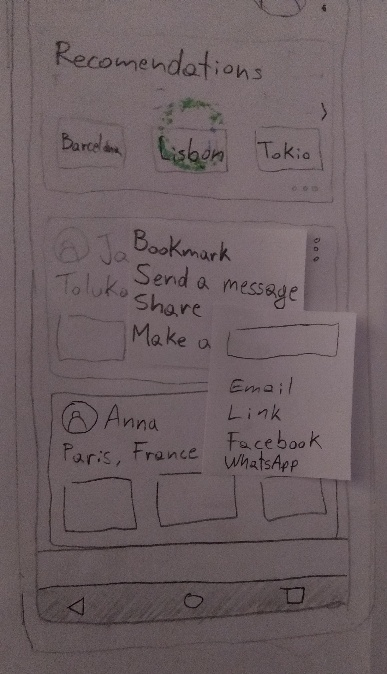 Recomendations
Barcelona
Lisbon
Tokio
Ja
Toluk
Bookmark
Send a message
Share
Make a
Email
Link
Facebook
WhatsApp
Anna
Paris, France